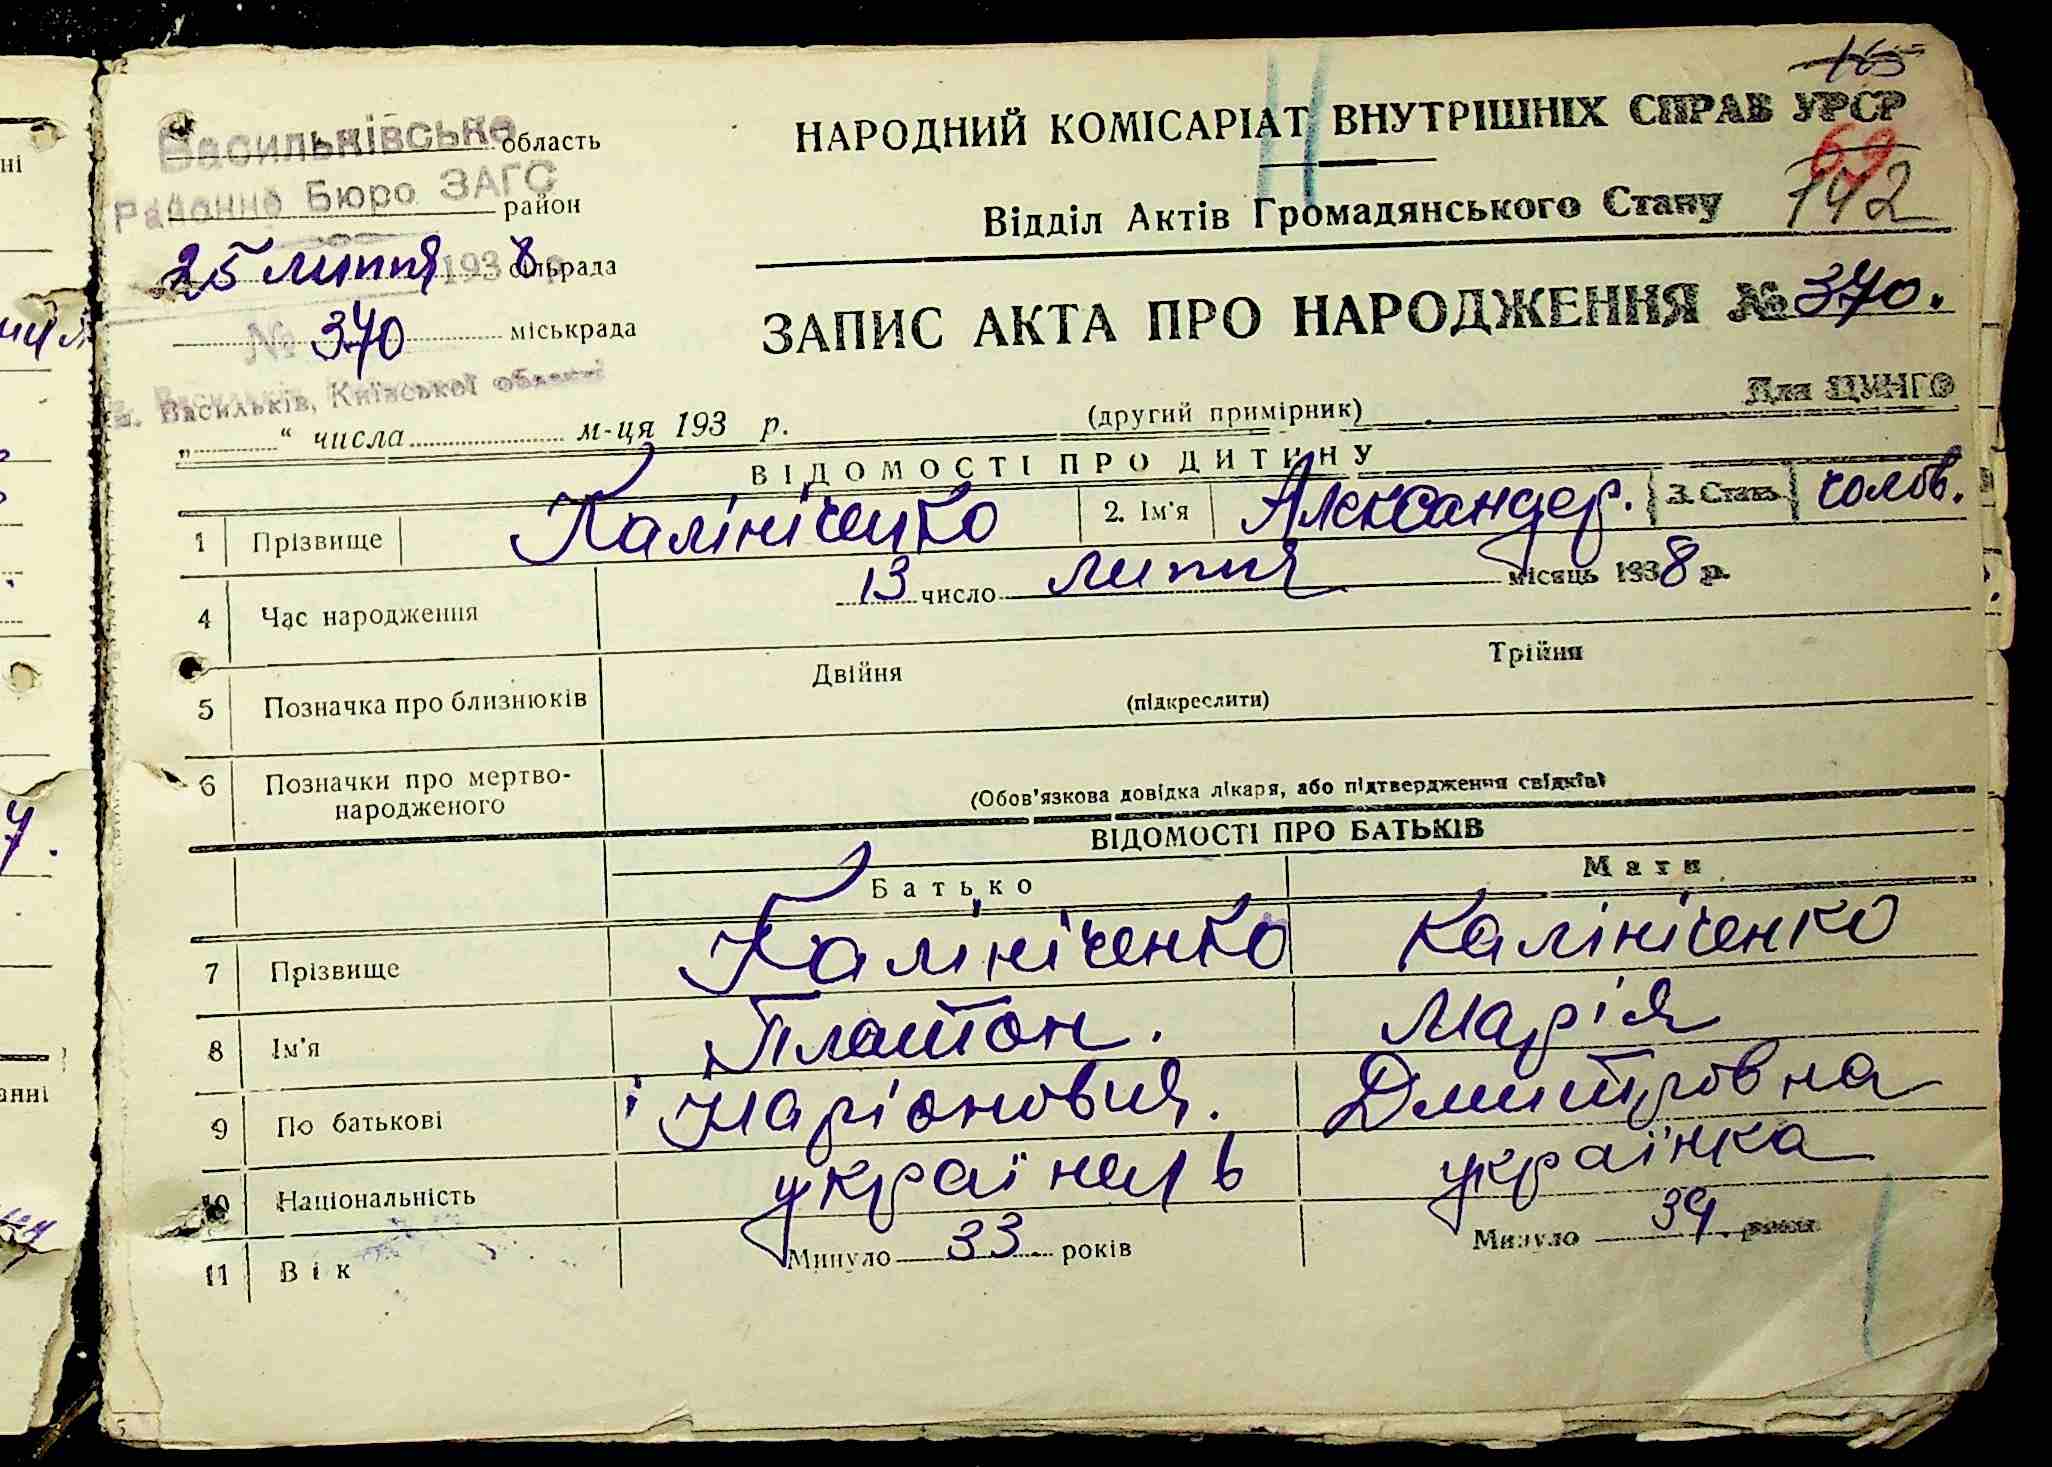 165
Васильківське область
Районне Бюро ЗАГС район
25 липня 1938 р. сільрада
№ 370 міськрада
м. Васильків, Київської області
„ “ числа м-ця 193 р.
НАРОДНИЙ КОМІСАРІАТ ВНУТРІШНІХ СПРАВ УРСР
69
142
Відділ Актів Громадянського Стану
ЗАПИС АКТА ПРО НАРОДЖЕННЯ № 370.
(другий примірник) Для ЦУНГО
ВІДОМОСТІ ПРО ДИТИНУ
1 Прізвище Калініченко 2. Ім'я Александер. 3. Стать чолов.
4 Час народження 13 число липня місяць 1938 р.
5 Позначка про близнюків Двійня Трійня
(підкреслити)
6 Позначки про мертво-
народженого (Обов'язкова довідка лікаря, або підтвердження свідків)
ВІДОМОСТІ ПРО БАТЬКІВ
Батько Мати
7 Прізвище Калініченко Калініченко
8 Ім'я Платон. Марія
9 По батькові Дмитровна
10 Національність українець українка
11 Вік Минуло 33 років Минуло 34 років